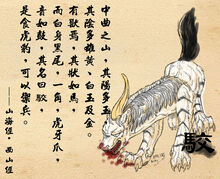 中曲之山，其陽多玉，
其陰多雄黃、白玉及金。
有獸焉，其狀如馬，
而白身黑尾，一角，虎牙爪，
音如鼓，其名曰駮，
是食虎豹，可以禦兵。
——山海經·西山經
駮